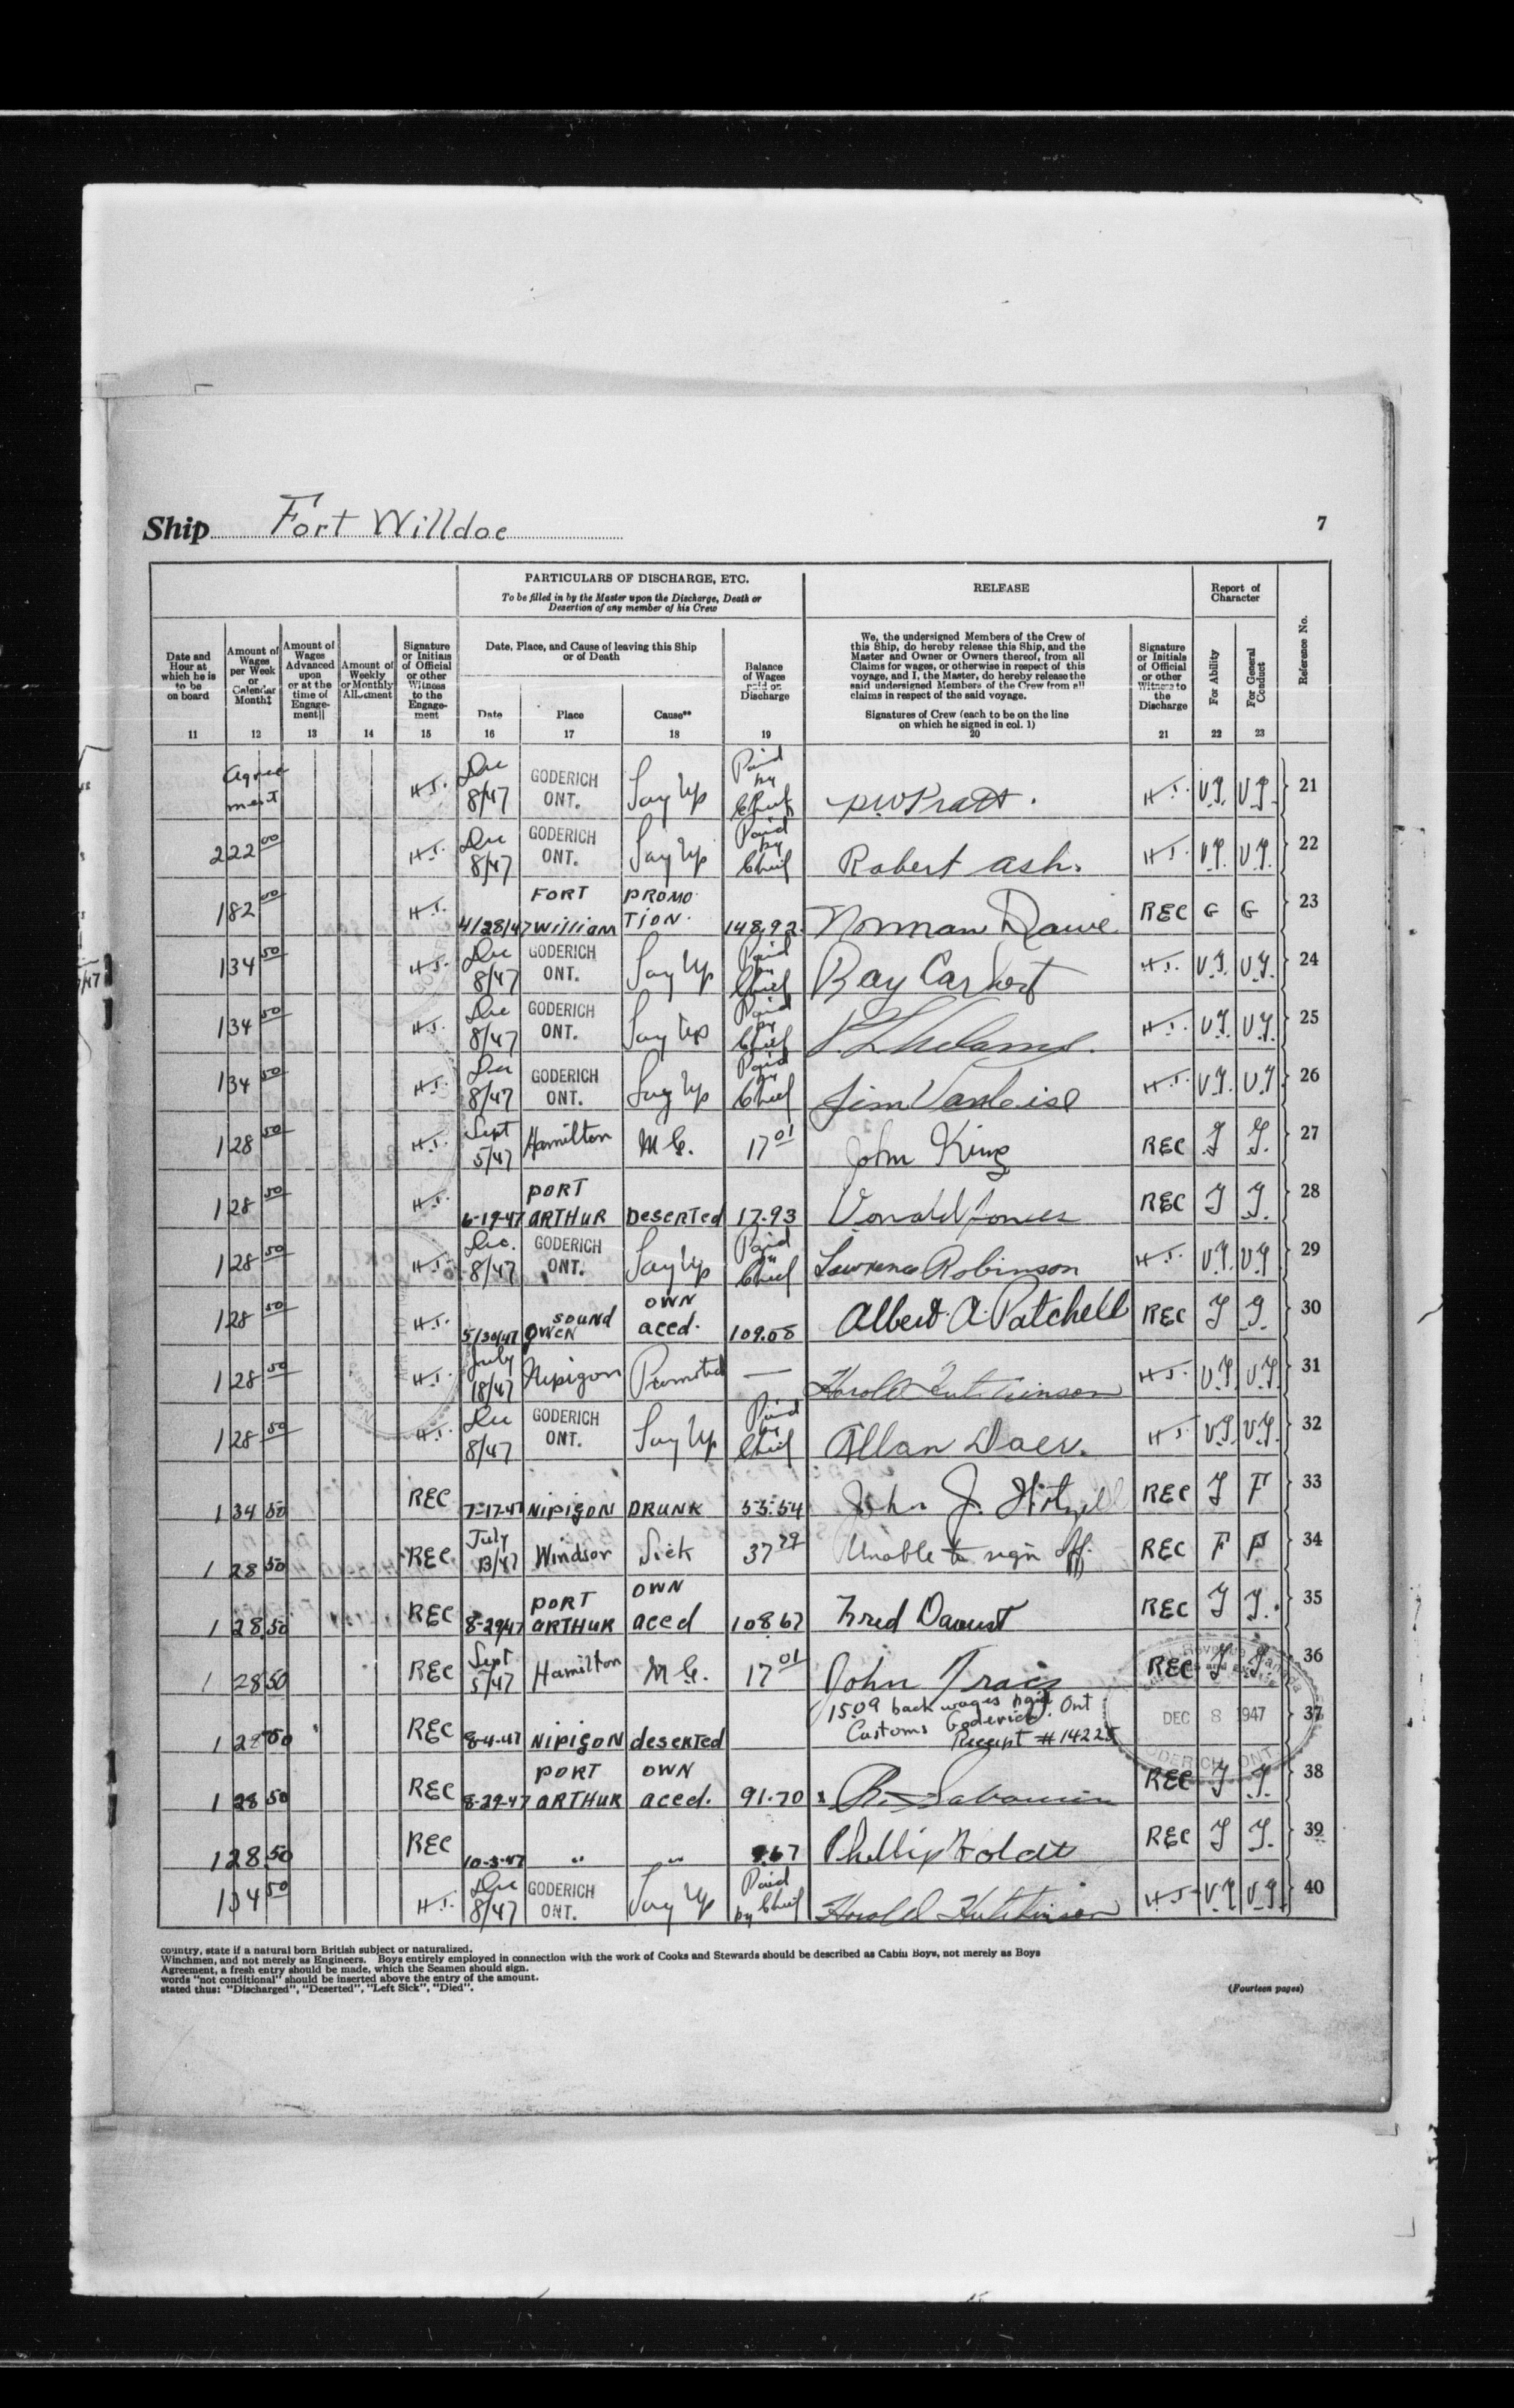 Ship Fort Willdoe
7
PARTICULARS OF DISCHARGE, ETC.
To be filled in by the Master upon the Discharge, Death or
Desertion of any member of his Crew
RELEASE
Report of
Character
Date and
Hour at
which he is
to be
on board
Amount of
Wages
per Week
or
Calendar
Month‡
Amount of
Wages
Advanced
upon
or at the
time of
Engage-
ment||
Amount of
Weekly
or Monthly
Allotment
Signature
or Initials
of Official
or other
Witness
to the
Engage-
ment
Date, Place, and Cause of leaving this Ship
or of Death
Date
Place
Cause**
Balance
of Wages
paid on
Discharge
We, the undersigned Members of the Crew of
this Ship, do hereby release this Ship, and the
Master and Owner or Owners thereof, from all
Claims for wages, or otherwise in respect of this
voyage, and I, the Master, do hereby release the
said undersigned Members of the Crew from all
claims in respect of the said voyage.
Signatures of Crew (each to be on the line
on which he signed in col. 1)
Signature
or Initials
of Official
or other
Witness to
the
Discharge
For Ability
For General
Conduct
Reference No.
11 12 13 14 15 16 17 18 19 20 21 22 23
Agree ment H.J. Dec 8/47 GODERICH ONT. Lay Up Paid by Chief H.J. V.G. V.G. 21
222 00 H.J. Dec 8/47 GODERICH ONT. Lay Up Paid by Chief Robert Ash. H.J. V.G. V.G. 22
182 00 H.J. 4/28/47 FORT William PROMO TION. 148.92 Norman Dawe REC G G 23
134 50 H.J. Dec 8/47 GODERICH ONT. Lay Up Paid by Chief Ray H.J. V.G. V.G. 24
134 50 H.J. Dec 8/47 GODERICH ONT. Lay Up Paid by Chief H.J. V.G. V.G. 25
134 50 H.J. Dec 8/47 GODERICH ONT. Lay Up Paid by Chief Jim H.J. V.G. V.G. 26
128 50 H.J. Sept 5/47 Hamilton M.C. 17 01 John King REC G G. 27
128 50 H.J. 6-19-47 PORT ARTHUR Deserted 17.93 Donald Jones REC G G. 28
128 50 H.J. Dec. 8/47 GODERICH ONT. Lay Up Paid by Chief Lawrence Robinson H.J. V.G. V.G 29
128 50 H.J. 5/30/47 OWEN SOUND OWN aced. 109.08 Albert. A. Patchell REC G G. 30
128 50 H.J. July 18/47 Nipigon Promoted — Harold Hutchinson H.J. V.G V.G. 31
128 50 H.J. Dec 8/47 GODERICH ONT. Lay Up Paid by Chief Allan Daer. H.J. V.G. V.G. 32
134 50 REC 7-17-47 NIPIGON DRUNK 55.54 John J. REC G F 33
128 50 REC July 13/47 Windsor Sick 37 79 Unable to sign off. REC F F 34
128.50 REC 8-29-47 PORT ARTHUR OWN aced 108 67 Fred Daoust REC G G. 35
128 50 REC Sept 5/47 Hamilton M.C. 17 01 John REC G G. 36
128 50 REC 8-4-47 NIPIGON deserted 15.09 back wages paid
Customs Goderich. Ont
Receipt # 14225 37
128 50 REC 8-29-47 PORT ARTHUR OWN aced. 91.70 x R. REC G G. 38
128.50 REC 10-3-47 " " 9.67 Phillip REC G G. 39
134 50 H.J. Dec 8/47 GODERICH ONT. Lay Up Paid by Chief Harold Hutchinson H.J. V.G V.G. 40
DEC 8 1947
GODERICH ONT
country, state if a natural born British subject or naturalized.
Winchmen, and not merely as Engineers. Boys entirely employed in connection with the work of Cooks and Stewards should be described as Cabin Boys, not merely as Boys
Agreement, a fresh entry should be made, which the Seamen should sign.
words "not conditional" should be inserted above the entry of the amount.
stated thus: "Discharged", "Deserted", "Left Sick", "Died".
(Fourteen pages)